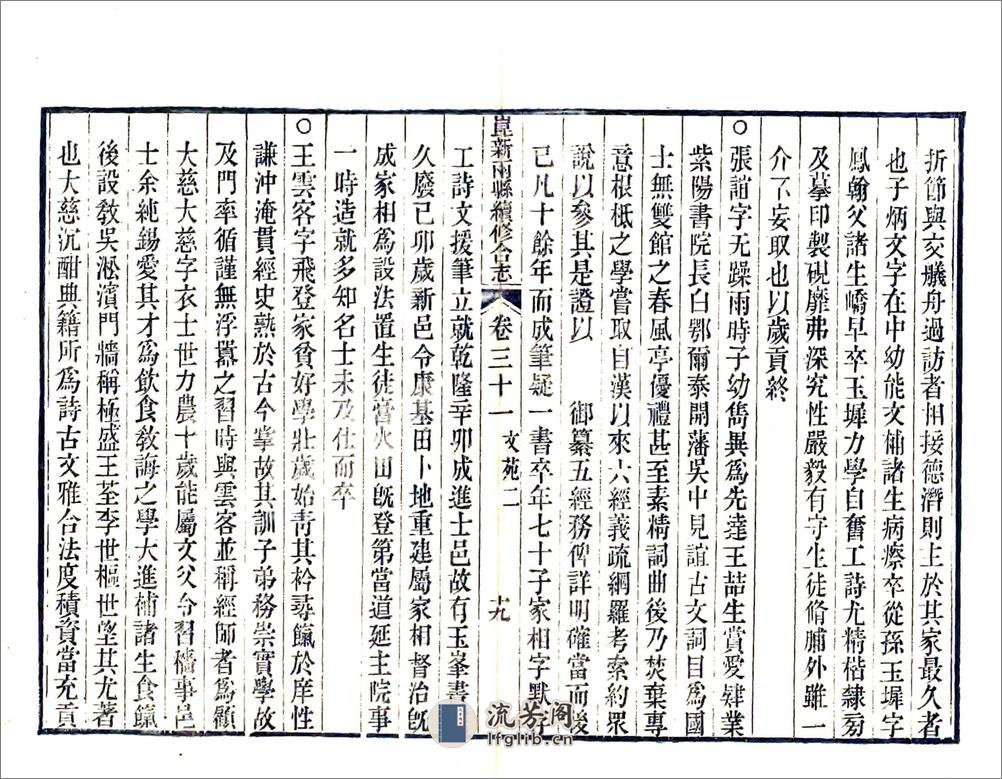 折節與交艤舟過訪者相接德濟則主於其家最久者
也子炳文字在中幼能文補諸生病瘵卒從孫玉墀字
鳳翰父諸生嶠早卒玉墀力學自奮工詩尤精楷隸旁
及摹印製硯靡弗深究性嚴毅有守生徒脩脯外雖一
介不妄取也以歲貢終
○張誼字无躁雨時子幼雋異爲先達王喆生賞愛肄業
紫陽書院長白鄂爾泰開藩吳中見誼古文詞目爲國
士無雙館之春風亭優禮甚至素精詞曲後乃焚棄專
意根柢之學嘗取自漢以來六經義疏網羅考索約眾
說以參其是證以 御纂五經務俾詳明確當而後
已凡十餘年而成筆疑一書卒年七十子家相字默存
崑新兩縣續修合志 卷三十一 文苑二 十九
工詩文援筆立就乾隆辛卯成進士邑故有玉峯書院
久廢己卯歲新邑令康基田卜地重建屬家相督治旣
成家相爲設法置生徒膏火田旣登第當道延主院事
一時造就多知名士未及仕而卒
○王雲客字飛登家貧好學壯歲始靑其衿尋餼於庠性
謙沖淹貫經史熟於古今掌故其訓子弟務崇實學故
及門率循謹無浮囂之習時與雲客並稱經師者爲顧
大慈大慈字衣士世力農十歲能屬文父令習穡事邑
士余純錫愛其才爲飲食敎誨之學大進補諸生食餼
後設敎吳淞濱門牆稱極盛王荃李世樞世望其尤著
也大慈沉酣典籍所爲詩古文雅合法度積資當充貢
流芳阁
lfglib.cn